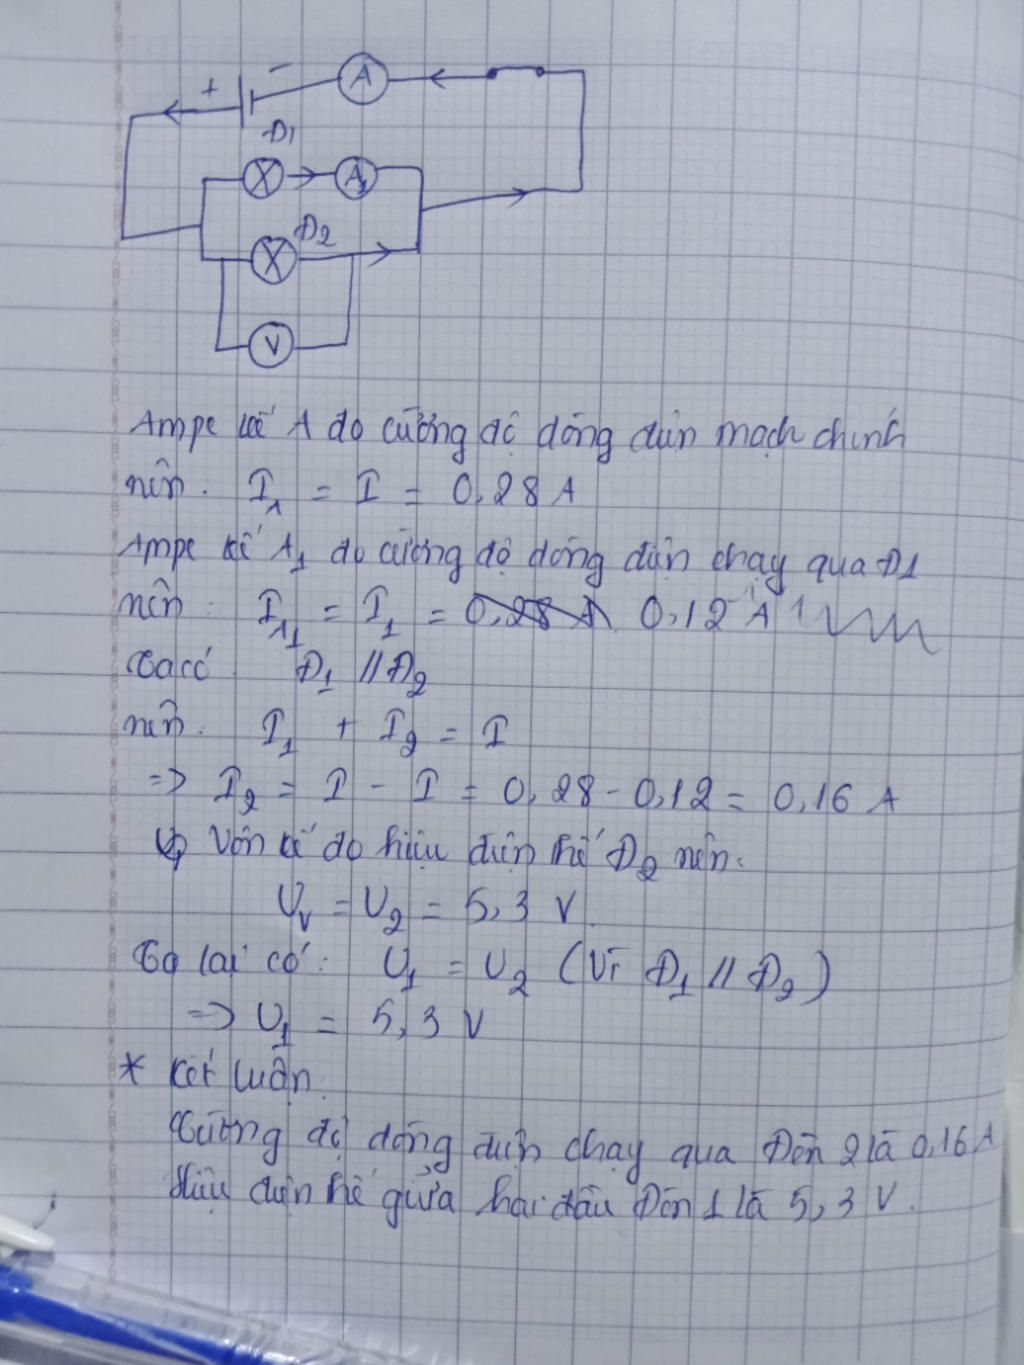 + − A
Đ1
X A1
Đ2
X
V
Ampe kế A đo cường độ dòng điện mạch chính
nên: I_A = I = 0,28 A
Ampe kế A1 đo cường độ dòng điện chạy qua Đ1
nên: I_A1 = I1 = 0,28 A 0,12 A
Ta có Đ1 // Đ2
nên: I1 + I2 = I
=> I2 = I - I = 0,28 - 0,12 = 0,16 A
Vôn kế đo hiệu điện thế Đ2 nên:
U_V = U2 = 5,3 V.
Ta lại có: U1 = U2 (Vì Đ1 // Đ2)
=> U1 = 5,3 V
* Kết luận:
Cường độ dòng điện chạy qua Đèn 2 là 0,16 A
Hiệu điện thế giữa hai đầu Đèn 1 là 5,3 V.